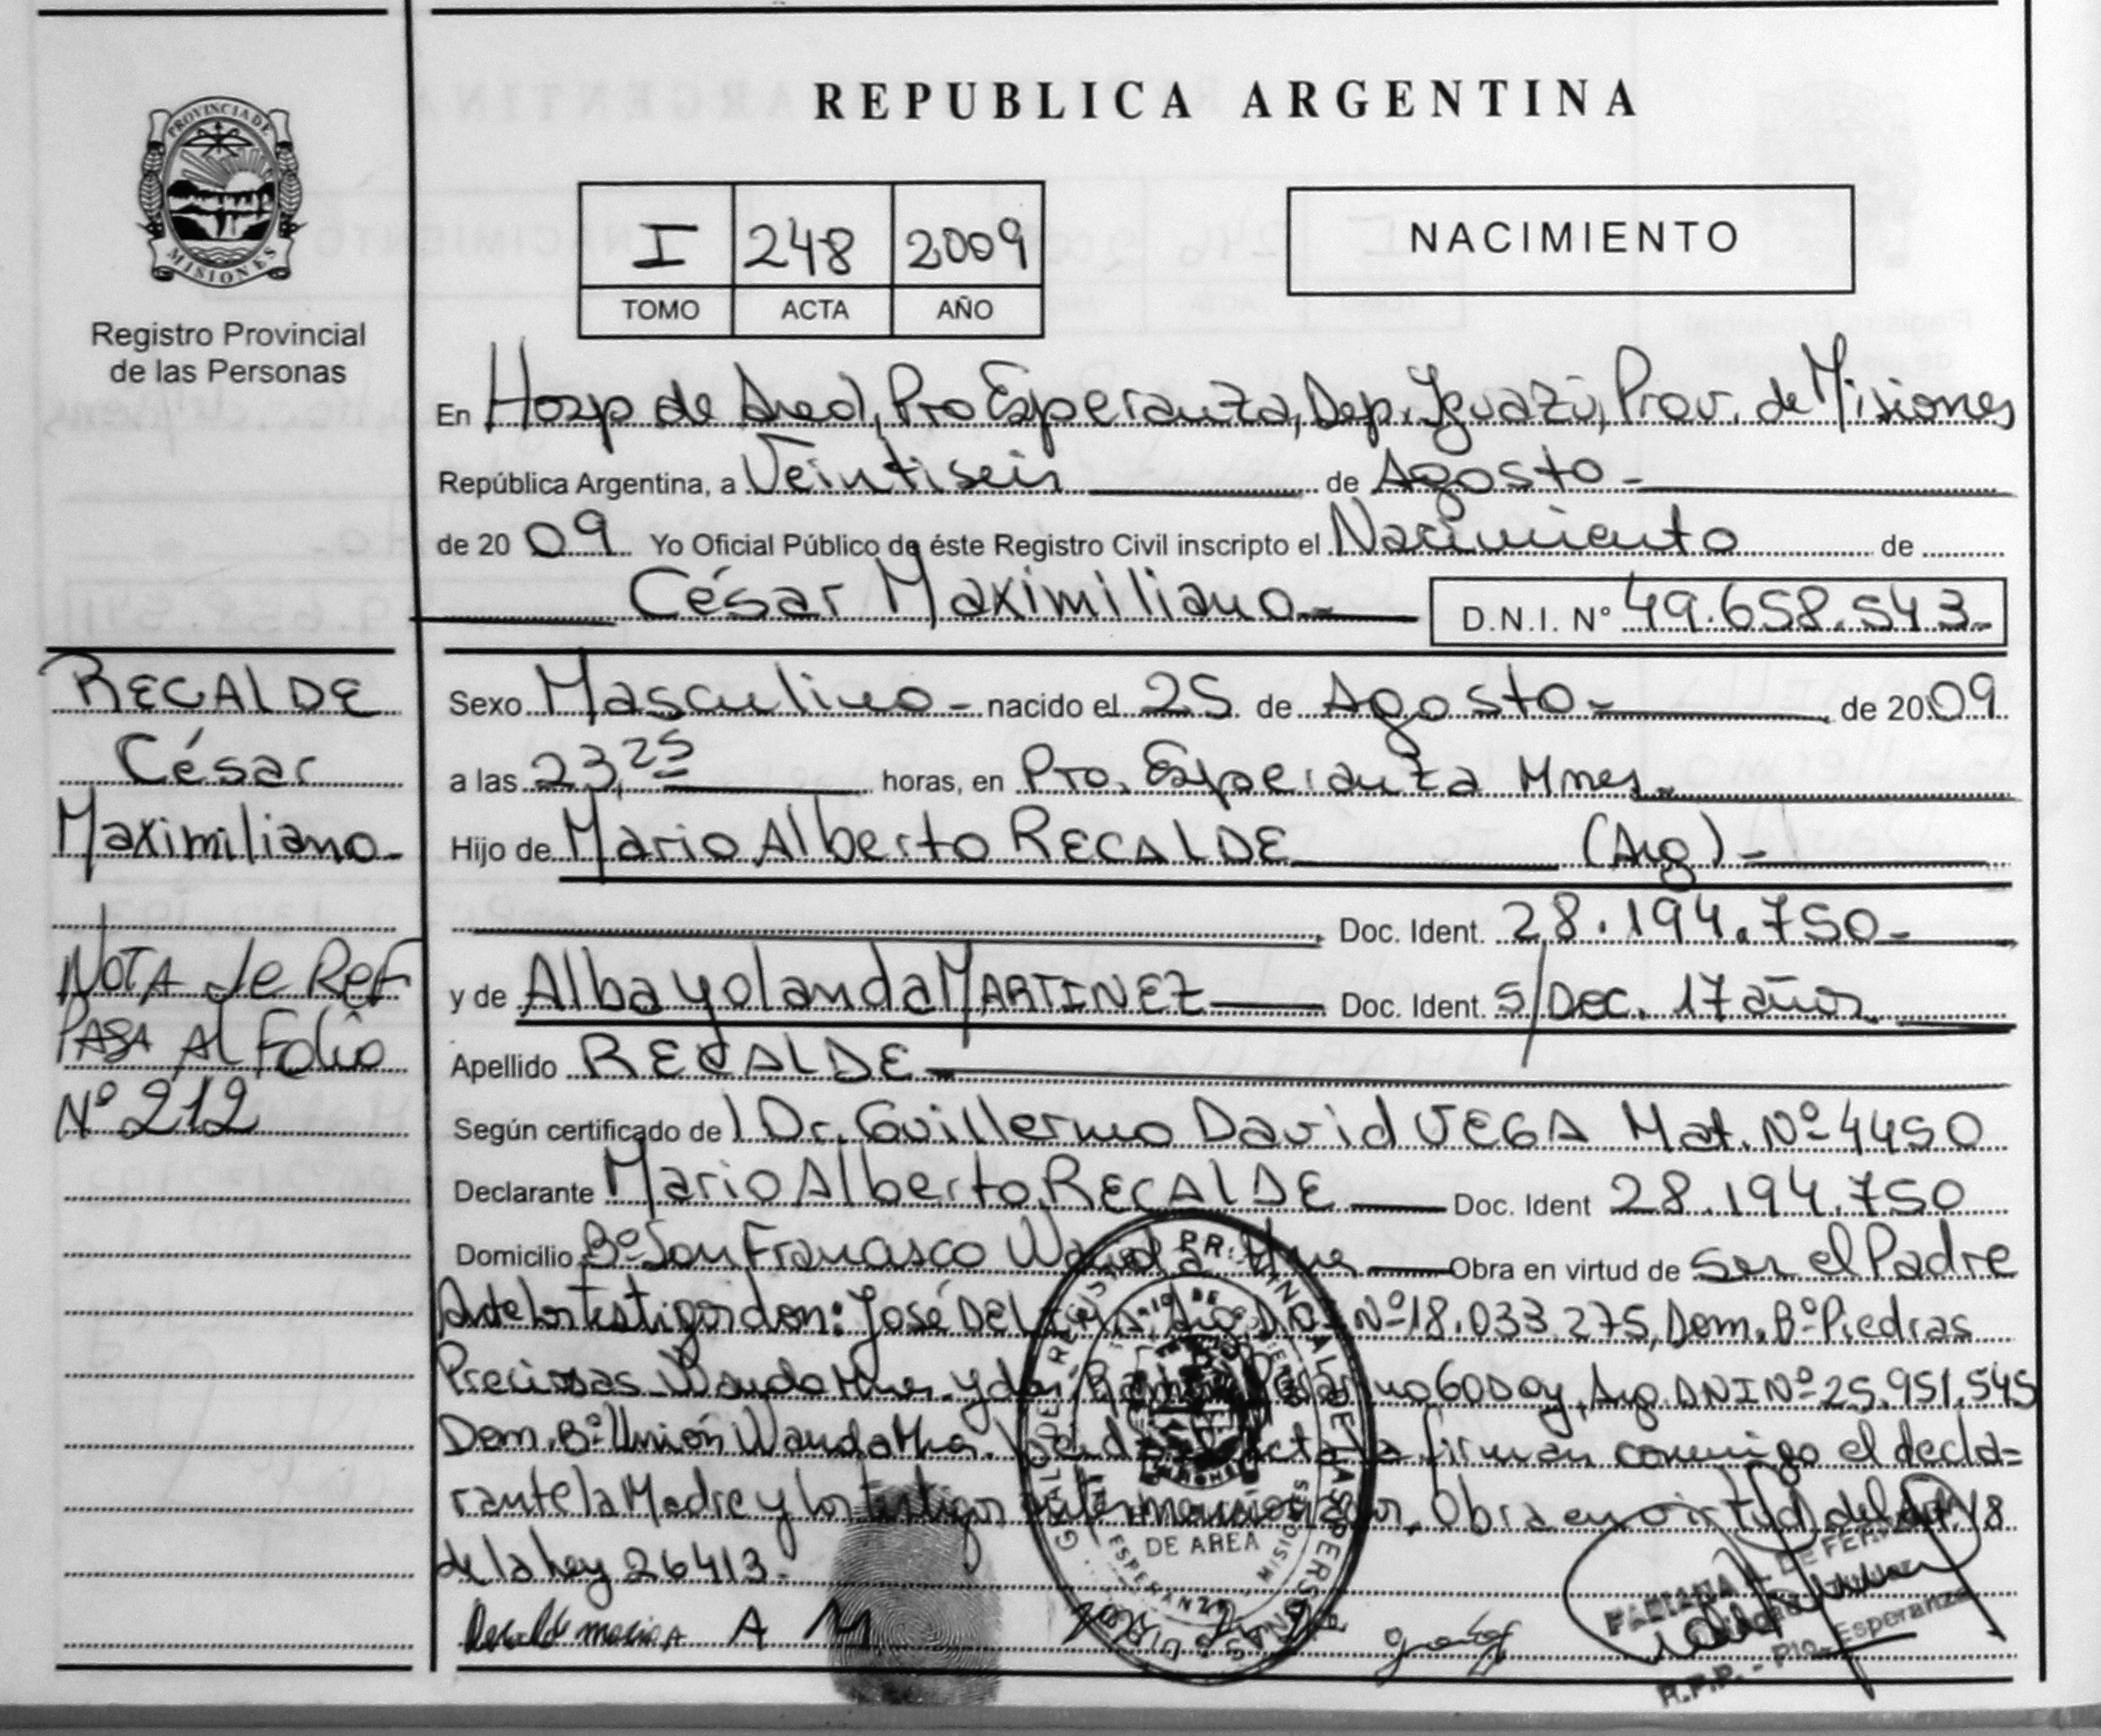 REPUBLICA ARGENTINA
PROVINCIA DE
MISIONES
Registro Provincial
de las Personas
I 248 2009
TOMO ACTA AÑO
NACIMIENTO
En Hosp de Area, Pto Esperanza, Dep. Iguazú, Prov. de Misiones
República Argentina, a Veintiseis de Agosto
de 20 09 Yo Oficial Público de éste Registro Civil inscripto el Nacimiento de
César Maximiliano D.N.I. Nº 49.658.543
RECALDE
César
Maximiliano
NOTA de Ref
PASA Al Folio
Nº 212
Sexo Masculino nacido el 25 de Agosto de 20 09
a las 23,25 horas, en Pto. Esperanza Mnes
Hijo de Mario Alberto RECALDE (Arg)
Doc. Ident. 28.194.750
y de Alba Yolanda MARTINEZ Doc. Ident. S/Doc. 17 años
Apellido RECALDE
Según certificado de l Dr. Guillermo David VEGA Mat. Nº 4450
Declarante Mario Alberto RECALDE Doc. Ident 28.194.750
Domicilio Bº San Francisco Wanda Obra en virtud de Ser el Padre
Ante los testigos don: José Nº 18.033.275, Dom. Bº Piedras
Preciosas Wanda Mnes. y don Arg. DNI Nº 25.951.545
Dom. Bº Unión Wanda Mnes. firman conmigo el decla=
rante la Madre y los testigos Obra en virtud del Art. 18
de la Ley 26413.
A M
DE AREA
ESPERANZA
R.P.P. - Pto. Esperanza